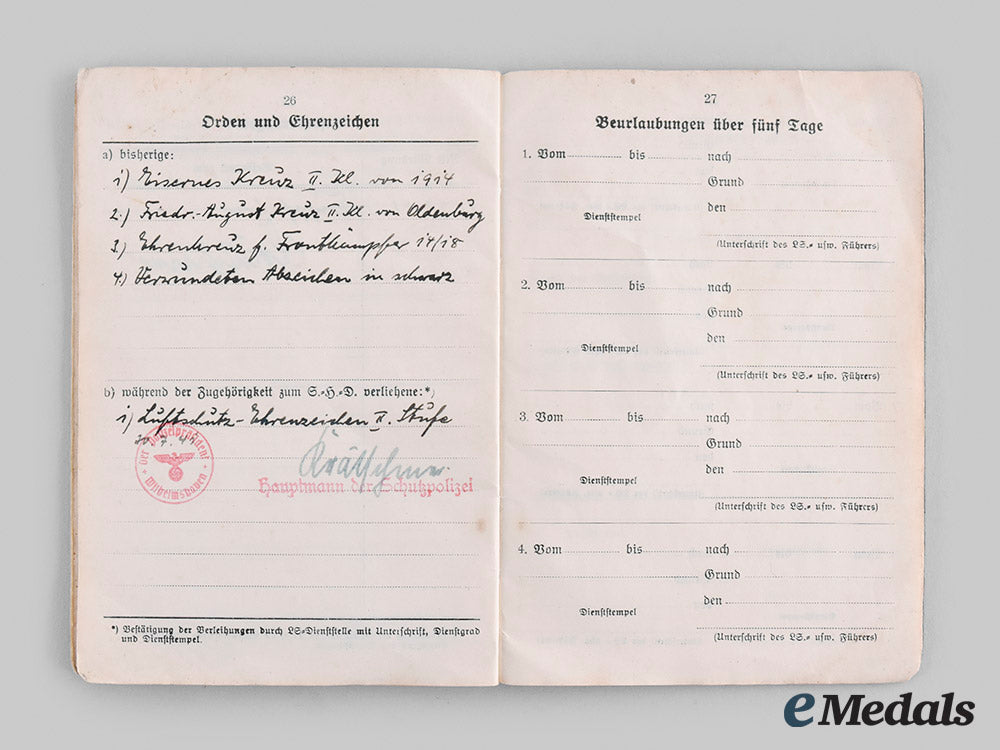 26
Orden und Ehrenzeichen
a) bisherige:
1) Eisernes Kreuz II. Kl. von 1914
2.) Friedr.-August Kreuz II. Kl. von Oldenburg
3.) Ehrenkreuz f. Frontkämpfer 14/18
4.) Verwundeten Abzeichen in schwarz
b) während der Zugehörigkeit zum S.-H.-D. verliehene:*)
1) Luftschutz-Ehrenzeichen II. Stufe
Der Polizeipräsident
Wilhelmshaven
Hauptmann der Schutzpolizei
*) Bestätigung der Verleihungen durch LS-Dienststelle mit Unterschrift, Dienstgrad
und Dienststempel.
27
Beurlaubungen über fünf Tage
1. Vom bis nach
Grund
den
Dienststempel
(Unterschrift des LS.- usw. Führers)
2. Vom bis nach
Grund
den
Dienststempel
(Unterschrift des LS.- usw. Führers)
3. Vom bis nach
Grund
den
Dienststempel
(Unterschrift des LS.- usw. Führers)
4. Vom bis nach
Grund
den
Dienststempel
(Unterschrift des LS.- usw. Führers)
eMedals